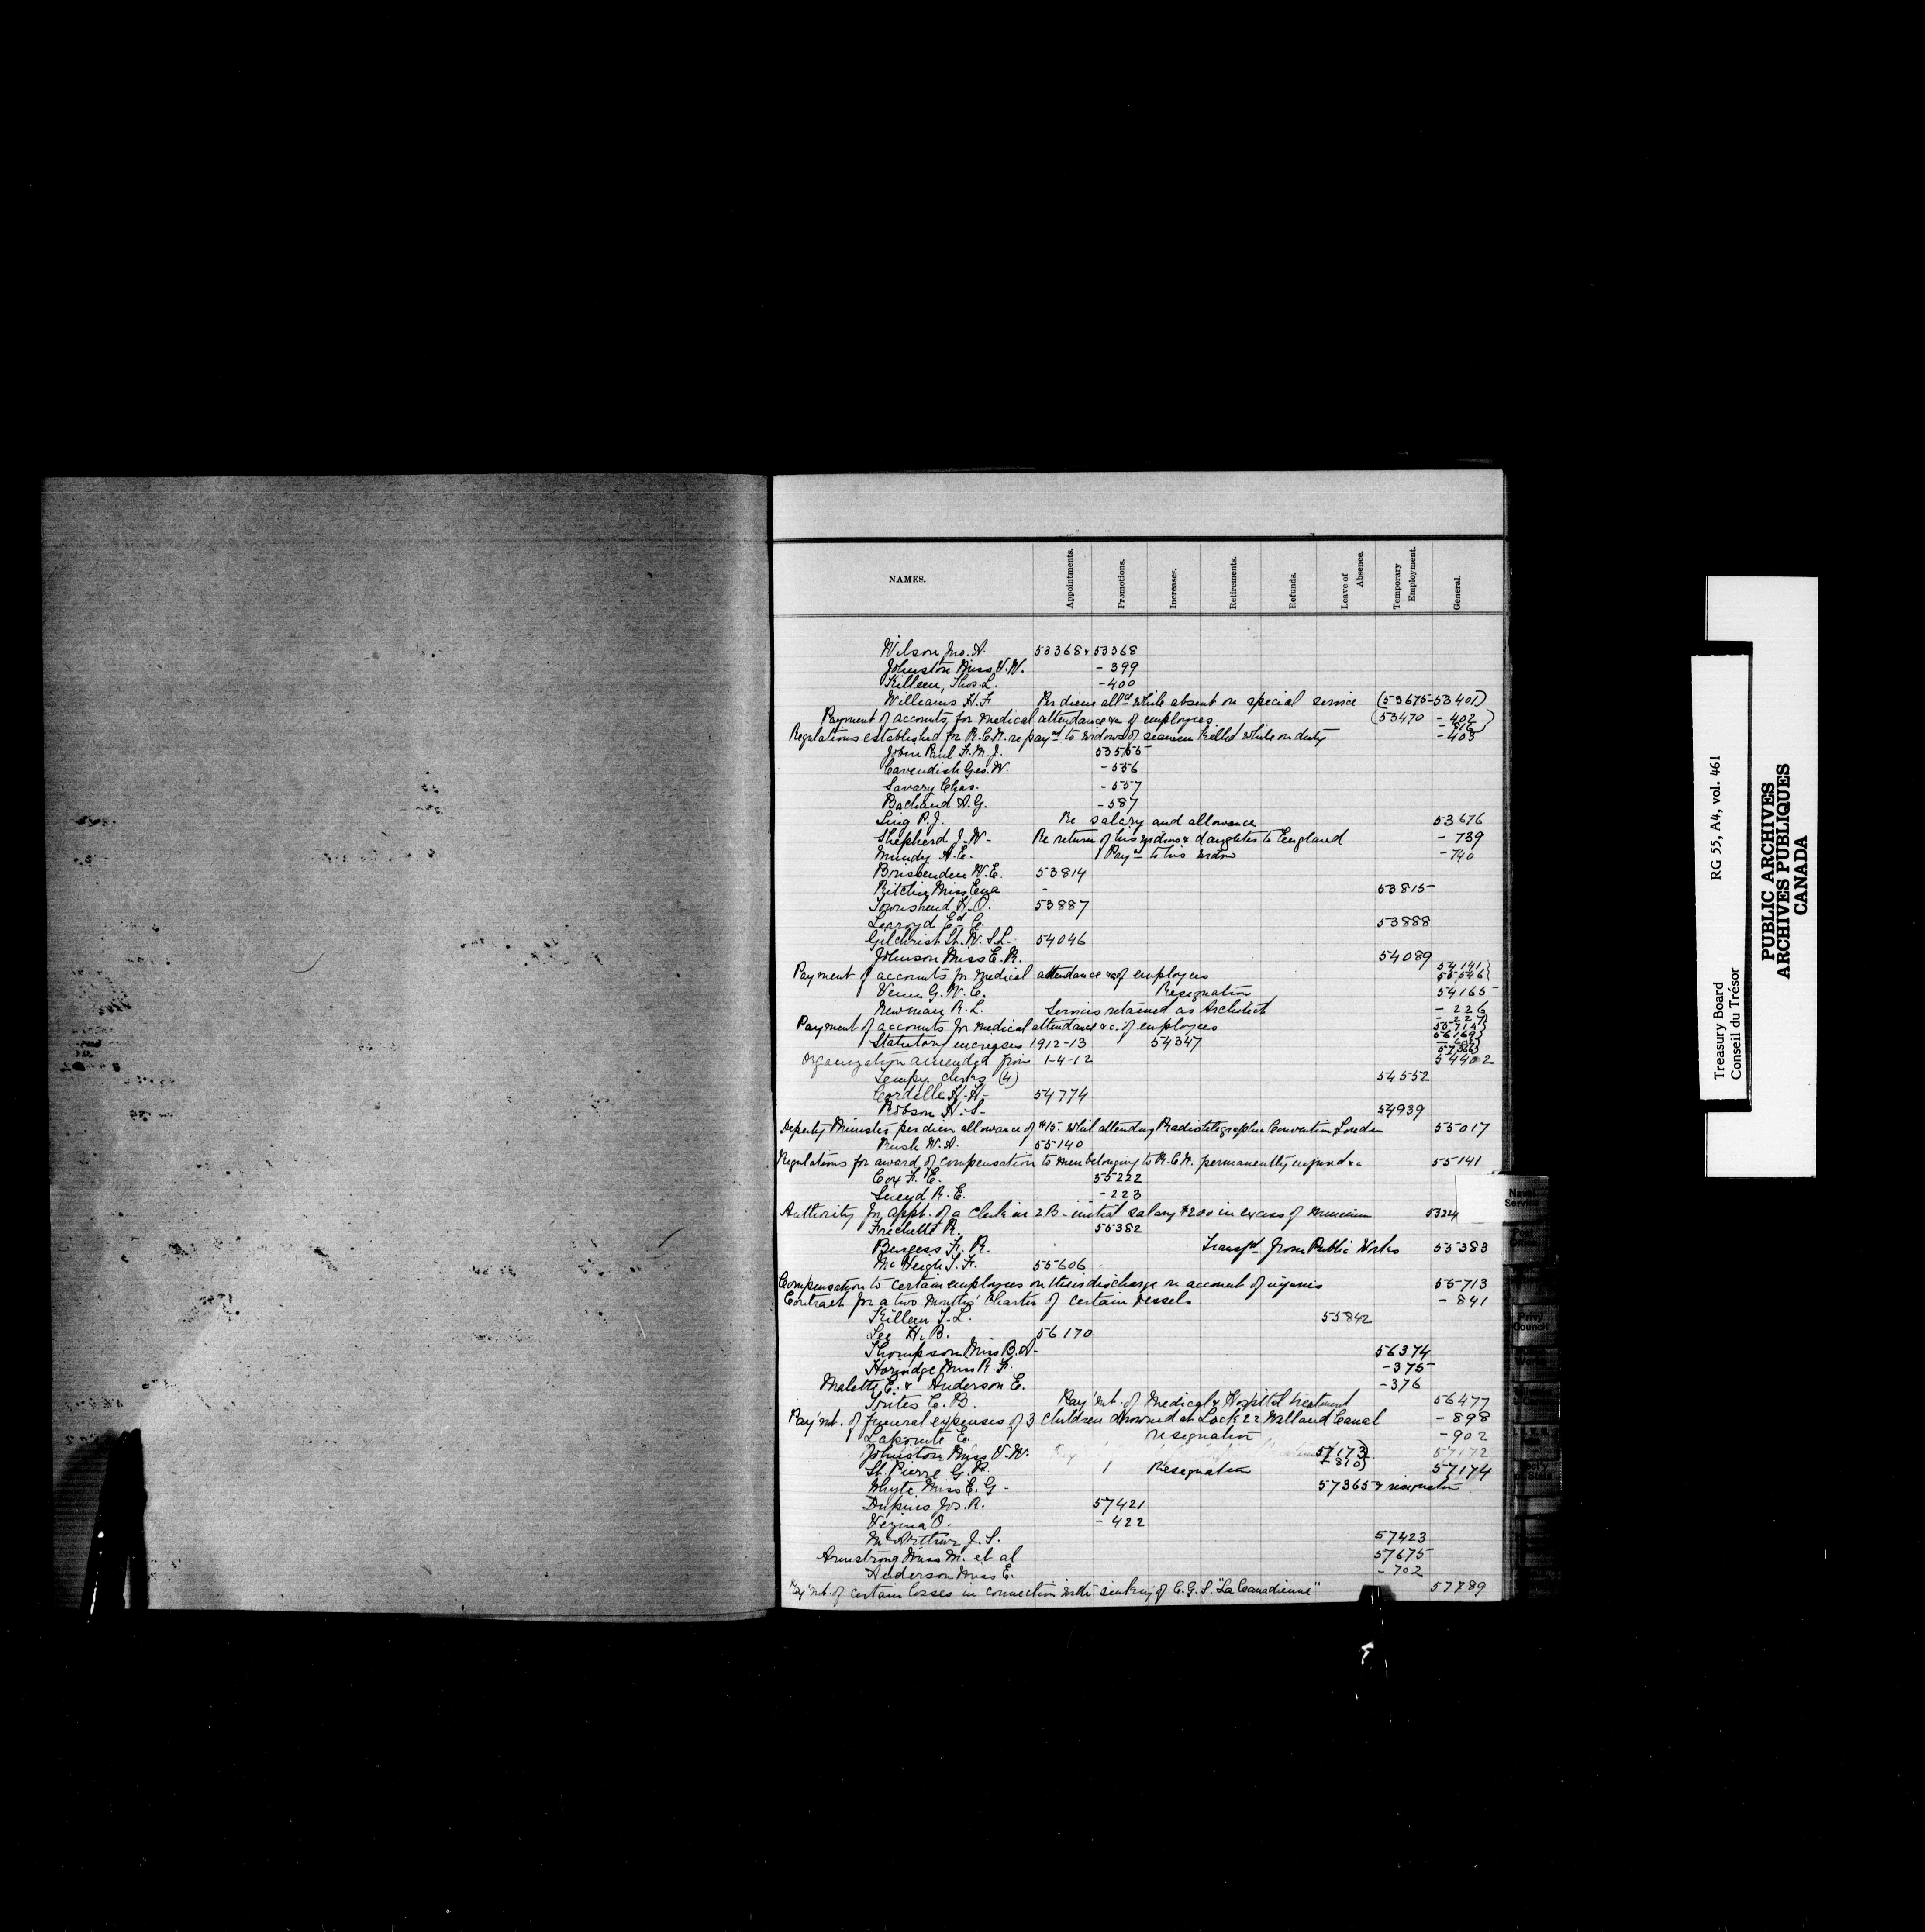 NAMES. Appointments. Promotions. Increases. Retirements. Refunds. Leave of Absence. Temporary Employment. General.
Wilson Jno. A. 53368 & 53368
Johnston Miss V. W. - 399
Killeen, Thos. L. - 400
Williams H. F. Per diem all^ce while absent on special service (53675 - 53401)
Payment of accounts for medical attendance &c of employees (53470 - 402 - 816)
Regulations established for R.C.N. re pay^mt to widows of seamen killed while on duty - 403
Jobin Paul F. M. J. 53555
Cavendish Geo. W. - 556
Savary Chas. - 557
Bachand A. G. - 587
Sing P. J. Re salary and allowance 53676
Shepherd J. W. Re return of his widow & daughters to England - 739
Mundy A. E. Pay^mt to his widow - 740
Brissenden W. E. 53814
Ritchie Miss Ena - 53815
Townshend H. O. 53887
Learoyd Ed. C. 53888
Gilchrist Lt. W. S. L. 54046
Johnson Miss E. R. 54089
Payment of accounts for medical attendance &c of employees 54141 55546
G. W. C. Resignation 54165
Newman R. L. Services retained as Architect - 226
Payment of accounts for medical attendance &c. of employees - 227 55714 56169
Statutory increases 1912-13 54347
Organization amended from 1-4-12 54402
Tempy. clerks (4) 54552
Cordelle H. H. 54774
Robson H. S. 54939
Deputy Minister, per diem allowance of $15. whil attending Radiotelegraphic Convention London 55017
Rush W. A. 55140
Regulations for award of compensation to men belonging to R.C.N. permanently injured &c 55141
Cox F. E. 55222
R. E. - 223
Authority for appt. of a clerk in 2B - initial salary $200 in excess of minimum 53224
Frechette R. 55382
Burgess F. R. Transf^d from Public Works 55383
McVeigh T. F. 55606
Compensation to certain employees on their discharge on account of injuries 55713
Contract for a two months' Charter of certain vessels - 841
Killeen T. L. 55842
Lee H. B. 56170
Thompson Miss B. A. 56374
Miss R. F. - 375
Malette E. & Anderson E. - 376
Trites C. B. Pay'mt. of Medical & Hospital treatment 56477
Pay'mt. of funeral expenses of 3 children drowned at Lock 22 Welland Canal - 898
Lapointe E. resignation - 902
Johnston Miss V. W. 57173 - 810) 57172
St. Pierre G. R. Resignation 57174
Whyte Miss E. G. 57365 & resignation
Dupuis Jos. R. 57421
Vezina O. - 422
McArthur J. S. 57423
Armstrong Miss M. et al 57675
Anderson Miss E. - 702
Pay'mt. of certain losses in connection with sinking of C.G.S. "La Canadienne" 57789
Naval Service
Post Office
Privy Council
Secty of State
RG 55, A4, vol. 461
Treasury Board
Conseil du Trésor
PUBLIC ARCHIVES
ARCHIVES PUBLIQUES
CANADA